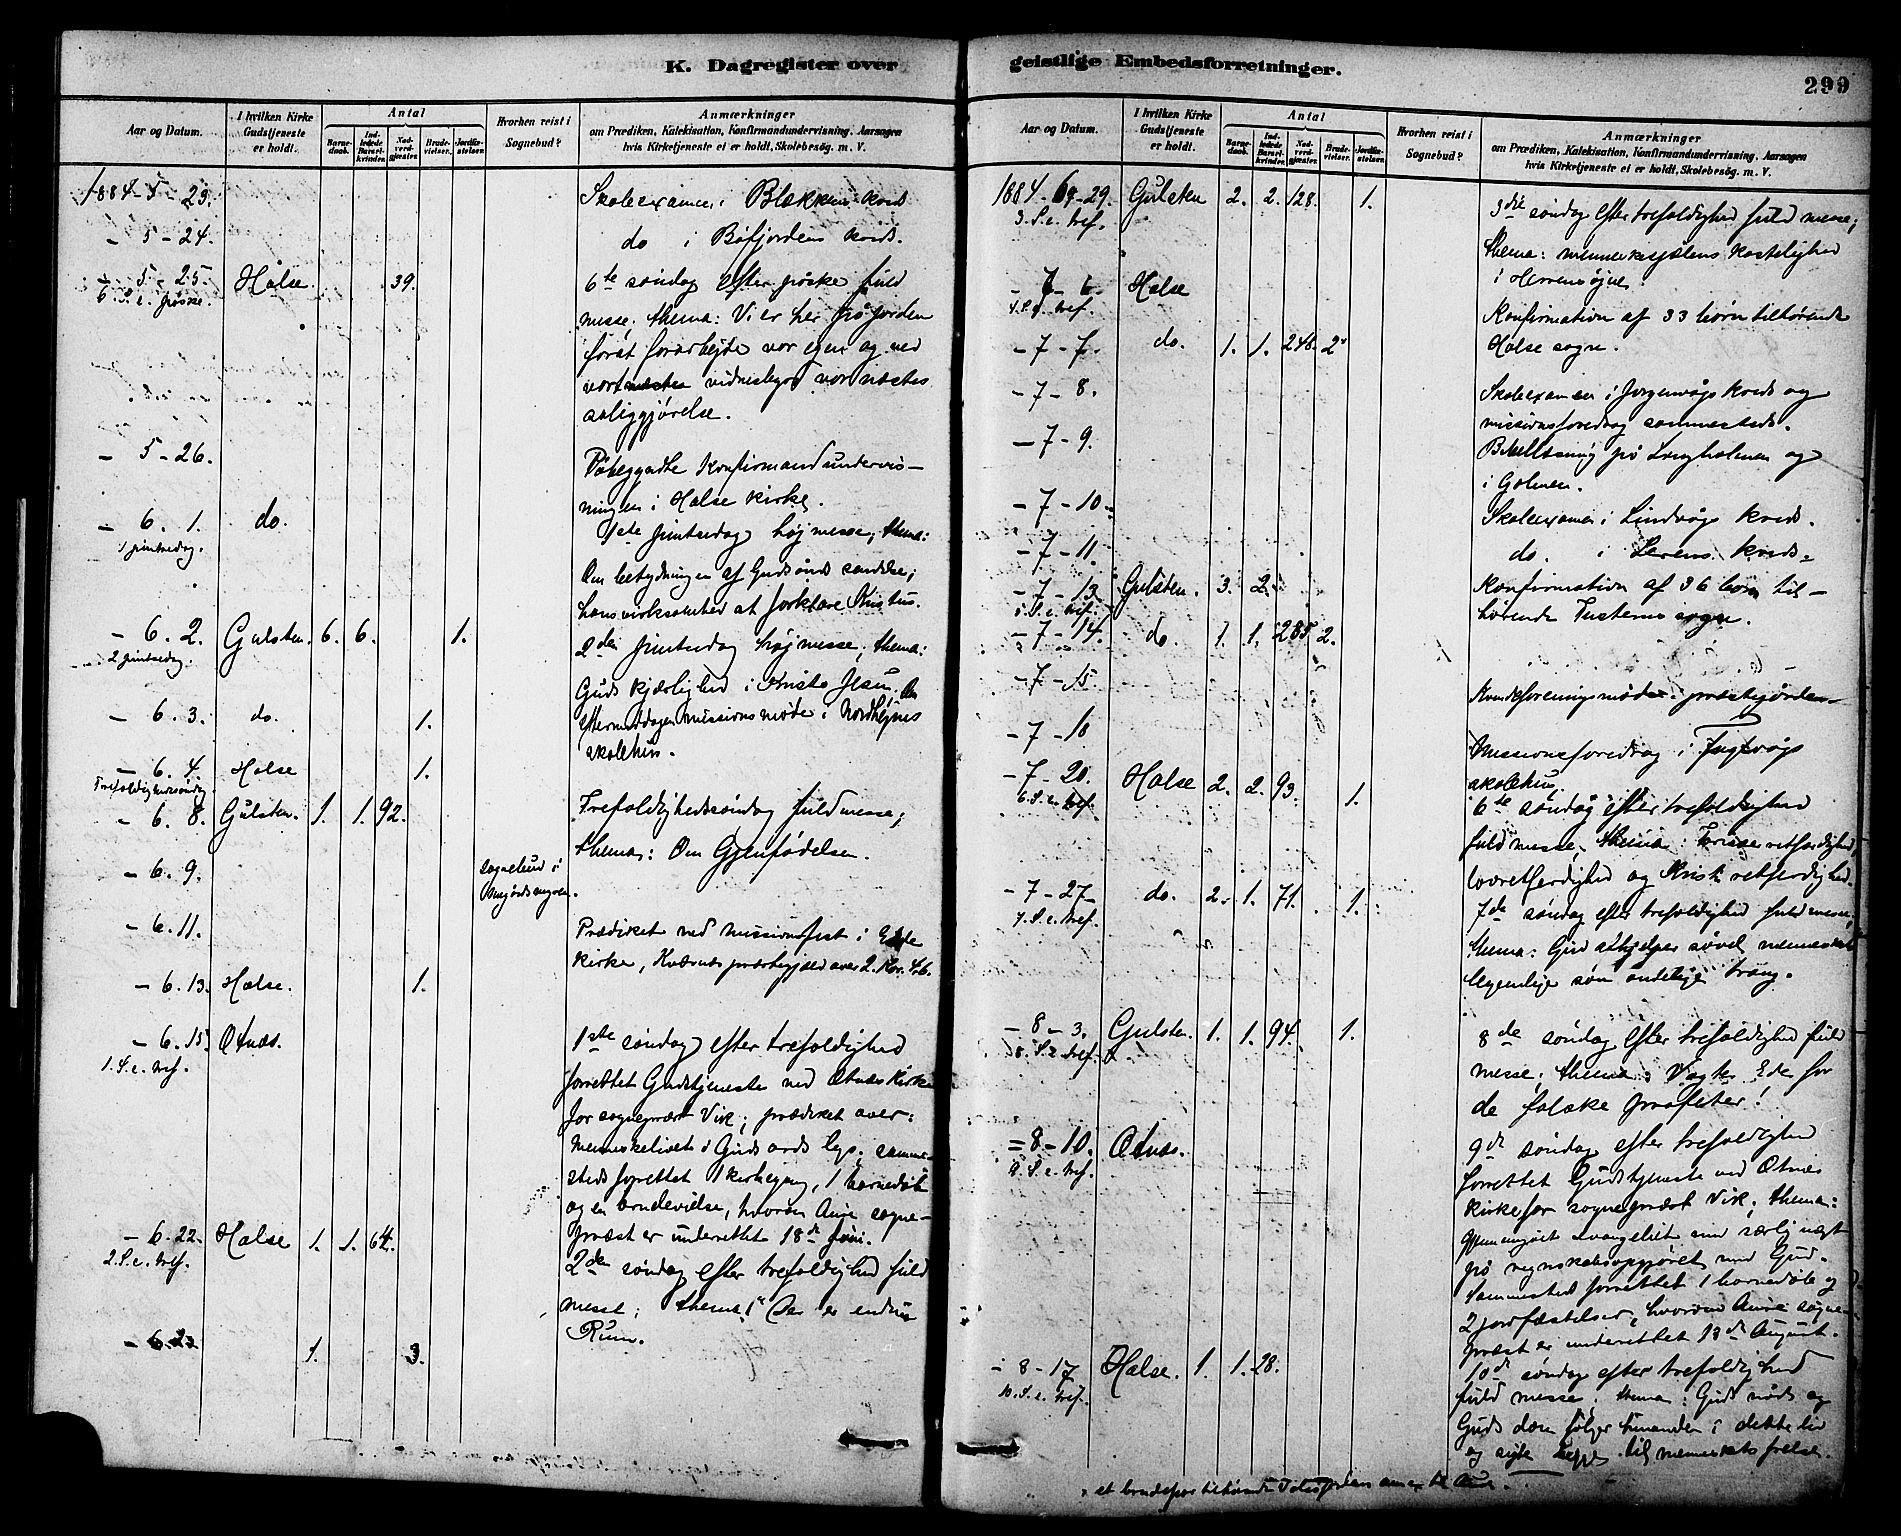 K. Dagregister over
Aar og Datum.
I hvilken Kirke
Gudstjeneste
er holdt.
Antal
Barne-
daab.
Ind-
ledede
Barsel-
kvinder.
Nad-
verd-
gjester.
Brude-
vielser.
Jordfæ-
stelser.
Hvorhen reist i
Sognebud?
Anmærkninger
om Prædiken, Katekisation, Konfirmandundervisning, Aarsagen
hvis Kirketjeneste ei er holdt, Skolebesøg. m. V.
1884-5-23. Skoleexamen i Blekken kreds
- 5-24. do i Bøfjordens kreds.
- 5-25. Halse. 39. 6te søndag efter påske fuld
6. S. e. påske. messe; thema: Vi er her på jorden
først for arbejde vor egen og ved
vort vidnesbyrd vor næstes
saliggjørelse.
- 5-26. Påbegyndte konfirmandundervis-
ningen i Halse kirke.
- 6. 1. do. 1ste pintsedag højmesse; thema:
1 pintsedag. Om betydningen af Guds ånds sendelse;
hans virksomhed at forklare Kristus.
- 6. 2. Gulsten. 6. 6. 1. 2den pintsedag højmesse; thema:
2 pintsedag. Guds kjærlighed i Kristo Jesu. Om
- 6. 3. do. 1. eftermiddagen missionsmøde i Nordhejnes
skolehus.
- 6. 4. Halse 1.
Trefoldighedssøndag
- 6. 8. Gulsten. 1. 1. 92. Trefoldighedssøndag fuld messe;
thema: Om Gjenfødelsen.
- 6. 9. sognebud i
- 6. 11. Prædiket ved missionsfest i Ede
kirke, Kværnes præstegjeld over 2. Kor. 4.6.
- 6. 13. Halse. 1.
- 6. 15. Otnæs. 1ste søndag efter trefoldighed
1. S. e. tref. forrettet Gudstjeneste ved Otnæs kirke
for sognepræst Vik; prædiket over:
Menneskelivet i Guds ords lys; samme-
steds forrettet 1 kirkegang, 1 barnedåb
og en brudevielse, hvorom Aure sogne-
præst er underrettet 18de juni.
- 6. 22. Halse 1. 1. 64. 2den søndag efter trefoldighed fuld
2. S. e. tref. messe; thema: Der er endnu
Rum.
- 6. 23 1. 3.
geistlige Embedsforretninger.
299
Aar og Datum.
I hvilken Kirke
Gudstjeneste
er holdt.
Antal
Barne-
daab.
Ind-
ledede
Barsel-
kvinder.
Nad-
verd-
gjester.
Brude-
vielser.
Jordfæ-
stelser.
Hvorhen reist i
Sognebud?
Anmærkninger
om Prædiken, Katekisation, Konfirmandundervisning, Aarsagen
hvis Kirketjeneste ei er holdt, Skolebesøg. m. V.
1884-6-29. Gulsten 2. 2. 128. 1. 3die søndag efter trefoldighed fuld messe;
3. S. e. tref. thema: menneskesjælens kostelighed
i Herrens øjne.
- 7-6. Halse Konfirmation af 33 børn tilhørende
4. S. e. tref. Halse sogn.
- 7-7. do. 1. 1. 246. 2
- 7-8. Skoleexamen i Jørgenvågs kreds og
missionsforedrag sammesteds.
- 7-9. Bibellæsning på Langholmen og
i Golmen.
- 7-10. Skoleexamen i Lindvågs kreds.
- 7-11. do. i Lerens kreds.
- 7-13. Gulsten. 3. 2. Konfirmation af 36 børn til-
5. S. e. tref. hørende Tusteren sogn.
- 7-14. do 1. 1. 285 2.
- 7-15. Kvindeforeningsmøde i præstegården
- 7-18 Missionsforedrag i Fugtvågs
skolehus.
- 7-20. Halse 2. 2. 93. 1. 6te søndag efter trefoldighed
6. S. e. tref. fuld messe; thema: retfærdighed,
lovretferdighed og Kristi retferdighed.
- 7-27 do. 2. 1. 71. 1. 7de søndag efter trefoldighed fuld messe;
7. S. e. tref. thema: Gud afhjælper såvel menneskets
legemlige som åndelige trang.
- 8-3. Gulsten. 1. 1. 94. 1. 8de søndag efter trefoldighed fuld
8. S. e. tref. messe; thema: Vogter Eder for
de falske profeter!
- 8-10. Otnæs. 9de søndag efter trefoldighed
9. S. e. tref. forrettet Gudstjeneste ved Otnæs
kirke for sognepræst Vik; thema:
gjennemgået evangeliet med særlig vægt
på regnskabsopgjøret med Gud.
Sammesteds forrettet 1 barnedåb og
2 jordfæstelser, hvorom Aure sogne-
præst er underrettet 13de August.
- 8-17 Halse. 1 1. 28. 10de søndag efter trefoldighed
10. S. e. tref. fuld messe; thema: Guds nåde og
Guds dom følger hinanden i dette liv
og sigte begge til menneskets frelse.